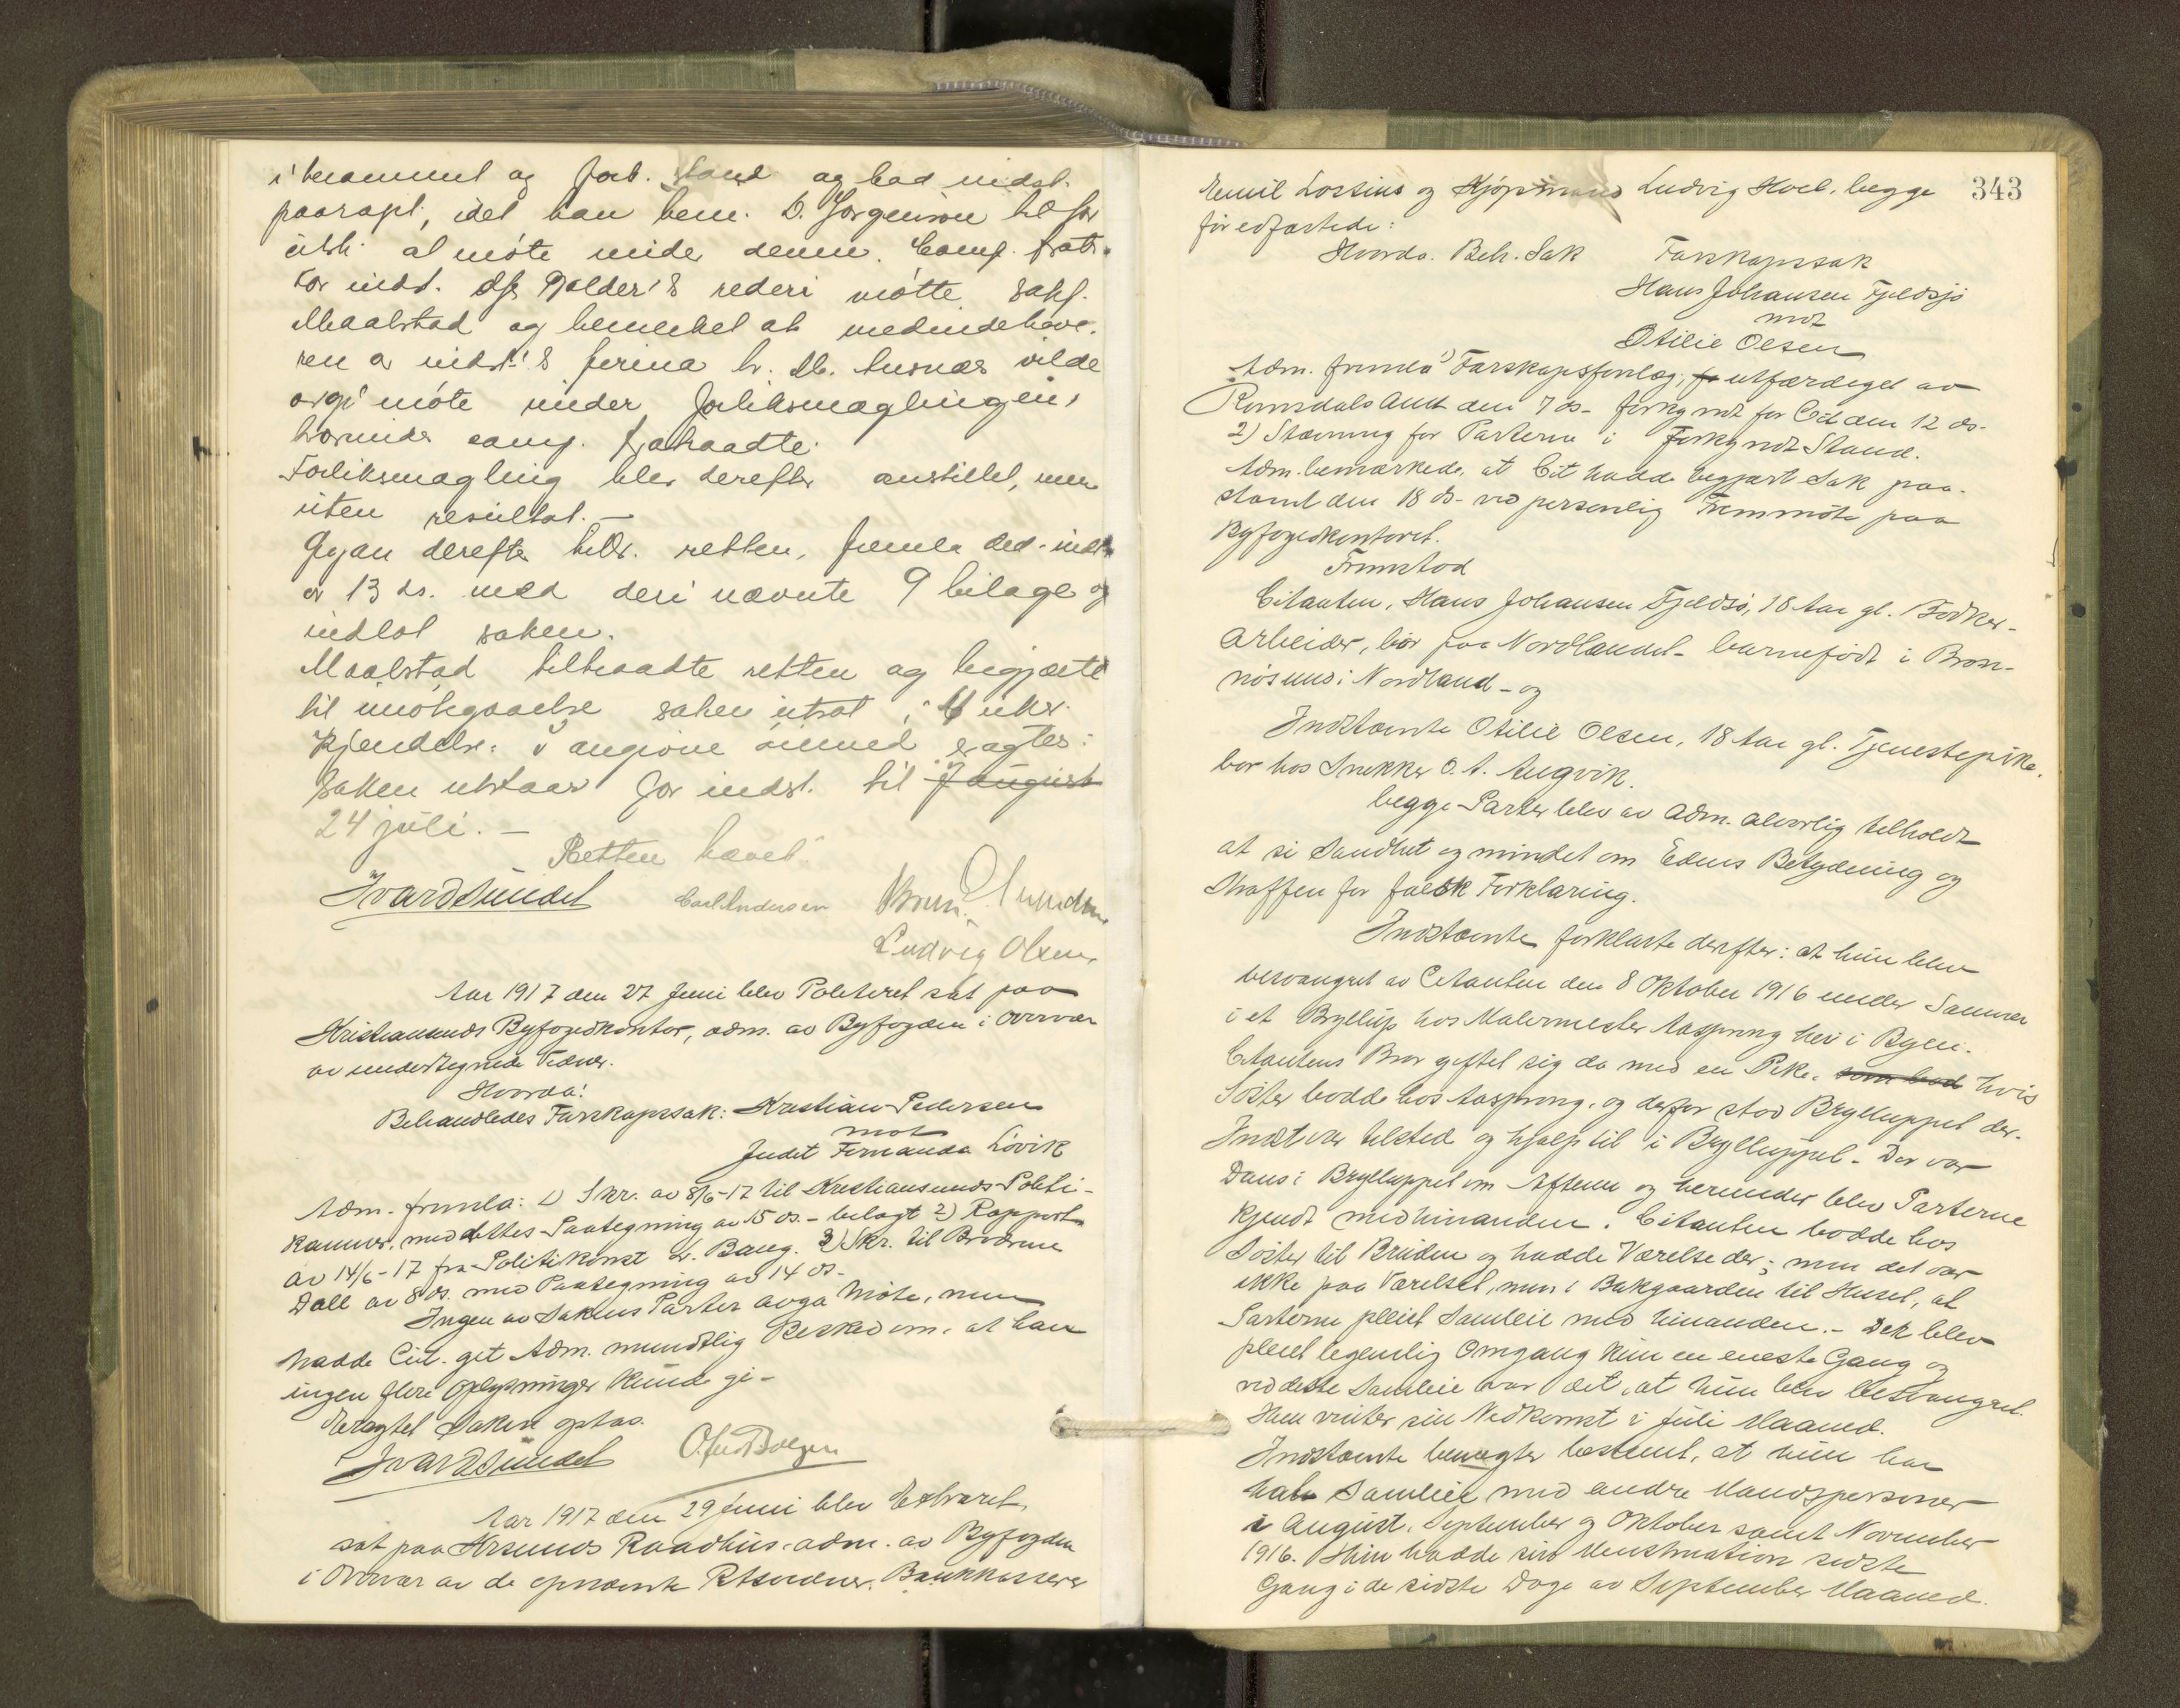 i berammet og forb. stand og bad indst.
paaropt, idet han bem. D. Jørgensen
at møte under denne. Comp. fratr.
For indst. rederi møtte sakf.
Maalstad og bemerket at medindehave-
ren av indst's firma hr. vilde
avgi møte under forliksmæglingen,
hvorunder comp. fratraadte.
Forliksmægling blev derefter anstillet, men
uten resultat. —
derefter tiltr. retten, freml. ded. indl.
av 13 ds. med deri nævnte 9 bilage og
indlot saken.
Maalstad tiltraadte retten og begjærte
til imøtegaaelse saken utsat i 4 uker.
Kjendelse: I angivne øiemed eragtes:
Saken utstaar for indst. til 7 august
24 juli. —
Retten hævet.
Ivar Dsundet Carl Andersen
Ludvig Olsen
Aar 1917 den 27 Juni blev Politiret sat paa
Kristiansunds Byfogedkontor, adm. av Byfogden i Overvær
av undertegnede Vidner.
Hvorda:
Behandledes Farskapssak: Kristian Pedersen
mot
Judit Fernanda Løvik
Adm. fremla: 1) Skr. av 8/6-17 til Kristiansunds Politi-
kammer, med dettes Paategning av 15 ds. - belagt 2) Rapport
av 14/6-17 fra Politikonst. Bang. 3) Skr. til Brødrene
Dall av 8 ds. med Paategning av 14 ds.
Ingen av Sakens Parter avga Møte, men
hadde Cit. git Adm. mundtlig Besked om, at han
ingen flere Oplysninger kunde gi -
Eragtet Saken optas.
Ivar Dsundet
Aar 1917 den 29 Juni blev Extraret
sat paa Krsunds Raadhus, adm. av Byfogden
i Overvær av de opnævnte Retsvidner, Bankkasserer
343
Emil Lossius og Kjøpmand Ludvig Hoel, begge
før edfæstede:
Hvorda. Beh. Sak Farskapssak
Hans Johansen Fjeldsjø
mot
Otilie Olsen
Adm. fremla 1) Farskapsforelæg, fo utfærdiget av
Romsdals Amt den 7 ds. - forkyndt for Cit den 12 ds.
2) Stævning for Parterne i Forkyndt Stand.
Adm. bemærkede, at Cit hadde begjært Sak paa-
stævnt den 18 ds. - ved personlig Fremmøte paa
Byfogedkontoret.
Fremstod
Citanten, Hans Johansen Fjeldsø, 18 Aar gl. Bødker-
arbeider, bor paa Nordlandet - barnefødt i Brøn-
nøsund i Nordland - og
Indstævnte Otilie Olsen, 18 Aar gl. Tjenestepike,
bor hos Snekker O. A. Angvik.
begge Parter blev av adm. alvorlig tilholdt
at si Sandhet og mindet om Edens Betydning og
Straffen for falsk Forklaring.
Indstævnte forklarte derefter: at hun blev
besvangret av Citanten den 8 Oktober 1916 under Samvær
i et Bryllup hos Malermester Aasprong her i Byen.
Citantens Bror giftet sig da med en Pike, som bod hvis
Søster bodde hos Aasprong, og derfor stod Bryllupet der.
Indst var tilsted og hjalp til i Bryllupet. - Der var
Dans i Bryllupet om Aftenen og herunder blev Parterne
kjendt med hinanden. Citanten bodde hos
Søster til Bruden og hadde Værelse der; men det var
ikke paa Værelset, men i Bakgaarden til Huset, at
Parterne pleiet Samleie med hinanden. - Det blev
pleiet legemlig Omgang kun en eneste Gang og
ved dette Samleie var det, at hun blev besvangret.
Hun venter sin Nedkomst i Juli Maaned.
Indstævnte benegter bestemt, at hun har
hat Samleie med andre Mandspersoner
i August, September og Oktober samt November
1916. Hun hadde sin Menstruation sidste
Gang i de sidste Dage av September Maaned.